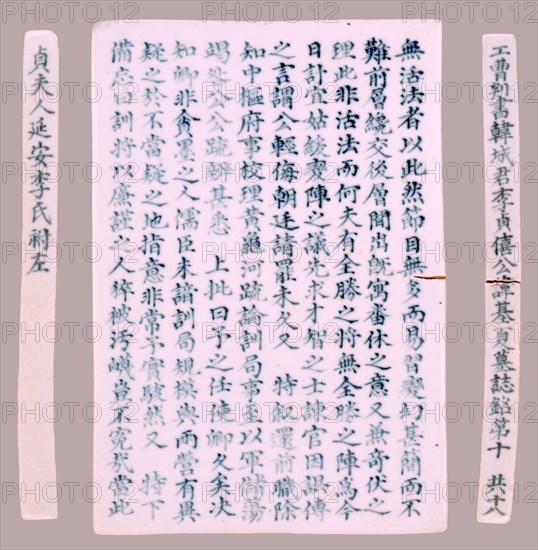 工曹判書韓城君李貞僖公諱基夏墓誌銘第十 共十八
無活法者以此然節目無多而易習變制甚簡而不
難前層繞交後層間出旣寓番休之意又兼奇伏之
理此非活法而何夫有全勝之將無全勝之陣爲今
日計宜姑緩變陣之議先求才智之士諫官因訛傳
之言謂公輕侮朝廷請罷未久又 特叙還前職除
知中樞府事校理黃龜河疏論訓局事至以軍儲蕩
竭咎公公疏辨甚悉 上批曰予之任使卿久矣決
知卿非貪墨之人儒臣未諳訓局規模與兩營有異
疑之於不當疑之地指意非常予實駭然又 特下
備忘曰訓將以廉謹之人猝被污衊豈不寃哉當此
貞夫人延安李氏祔左